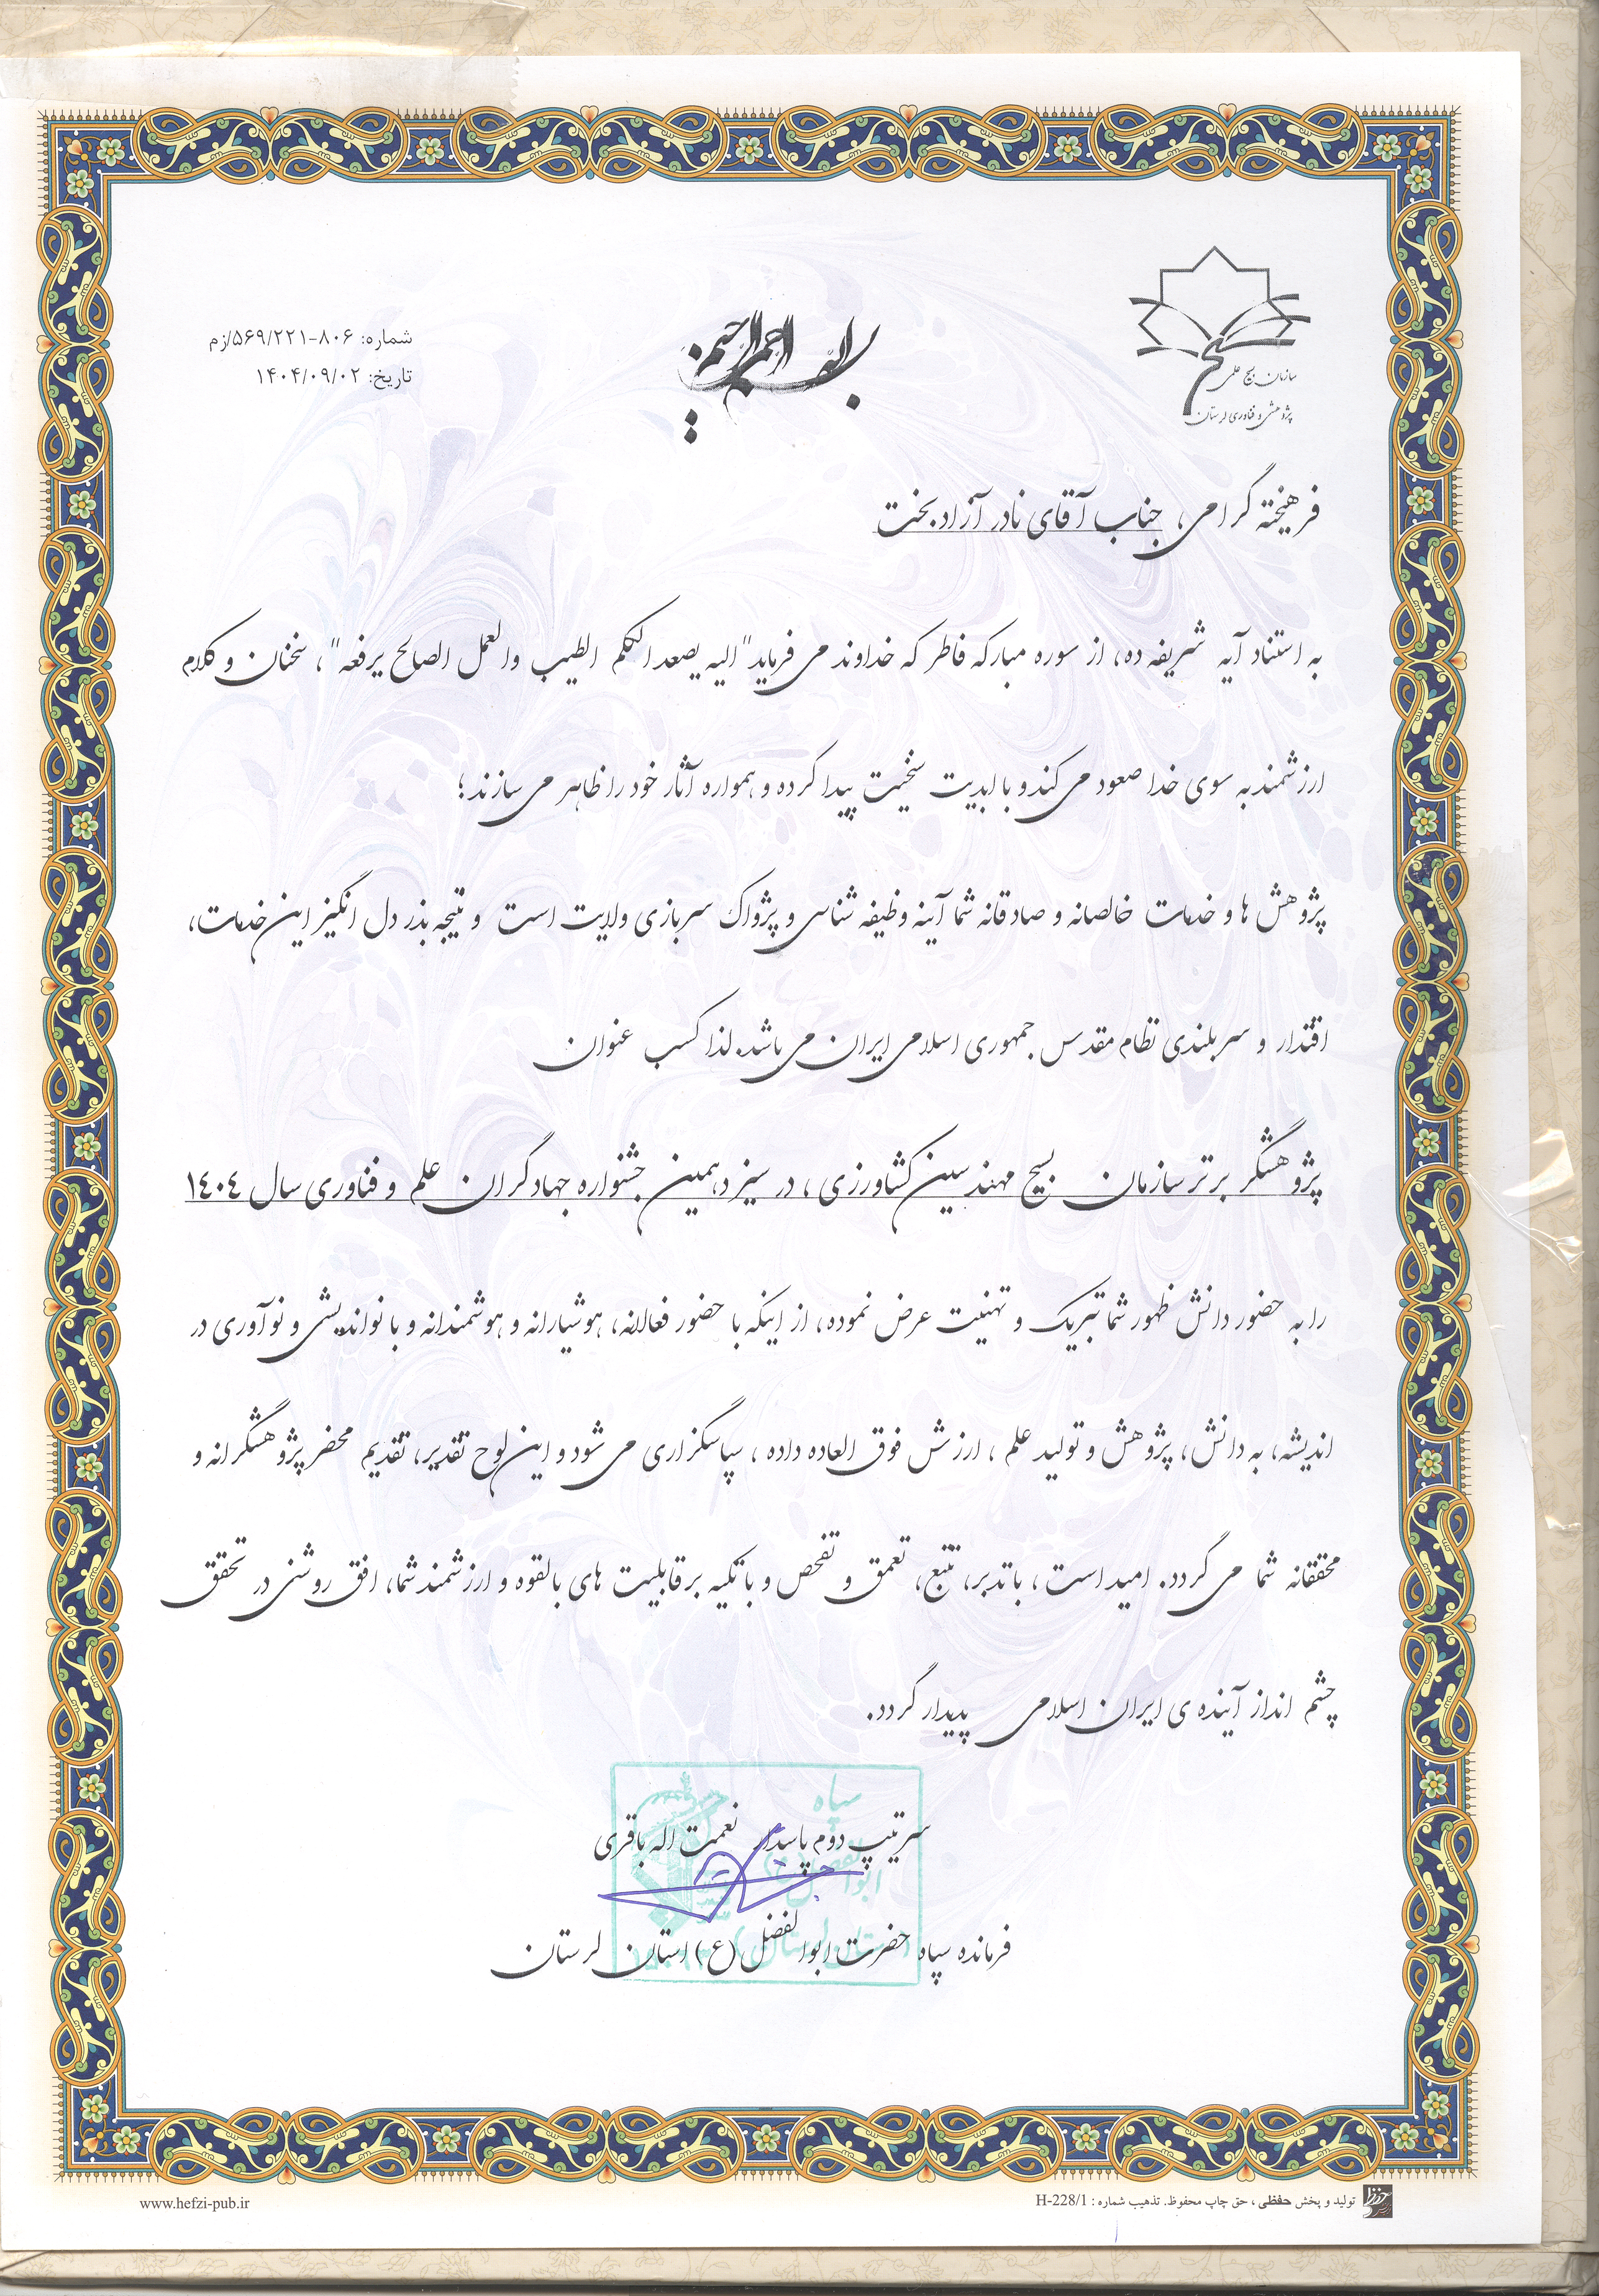 بسم الله الرحمن الرحیم
سازمان بسیج علمی
پژوهشی و فناوری لرستان
شماره: ۸۰۶-۵۶۹/۲۲۱/زم
تاریخ: ۱۴۰۴/۰۹/۰۲
فرهیخته گرامی، جناب آقای نادر آزادبخت
به استناد آیه شریفه ده، از سوره مبارکه فاطر که خداوند می فرماید"الیه یصعد الکلم الطیب والعمل الصالح یرفعه"، سخنان و کلام
ارزشمند به سوی خدا صعود می کند و با ابدیت سخیت پیدا کرده و همواره آثار خود را ظاهر می سازند؛
پژوهش ها و خدمات خالصانه و صادقانه شما آینه وظیفه شناسی و پژواک سربازی ولایت است و نتیجه بذر دل انگیز این خدمات،
اقتدار و سربلندی نظام مقدس جمهوری اسلامی ایران می باشد. لذا کسب عنوان
پژوهشگر برتر سازمان بسیج مهندسین کشاورزی، در سیزدهمین جشنواره جهادگران علم و فناوری سال ۱۴۰۴
را به حضور دانش ظهور شما تبریک و تهنیت عرض نموده، از اینکه با حضور فعالانه، هوشیارانه و هوشمندانه و با نواندیشی و نوآوری در
اندیشه، به دانش، پژوهش و تولید علم، ارزش فوق العاده داده، سپاسگزاری می شود و این لوح تقدیر، تقدیم محضر پژوهشگرانه و
محققانه شما می گردد. امید است، با تدبر، تتبع، تعمق و تفحص و با تکیه بر قابلیت های بالقوه و ارزشمند شما، افق روشنی در تحقق
چشم انداز آینده ی ایران اسلامی پدیدار گردد.
سپاه
سرتیپ دوم پاسدار نعمت اله باقری
فرمانده سپاه حضرت ابوالفضل (ع) استان لرستان
تولید و پخش حفظی، حق چاپ محفوظ. تذهیب شماره : H-228/1
www.hefzi-pub.ir